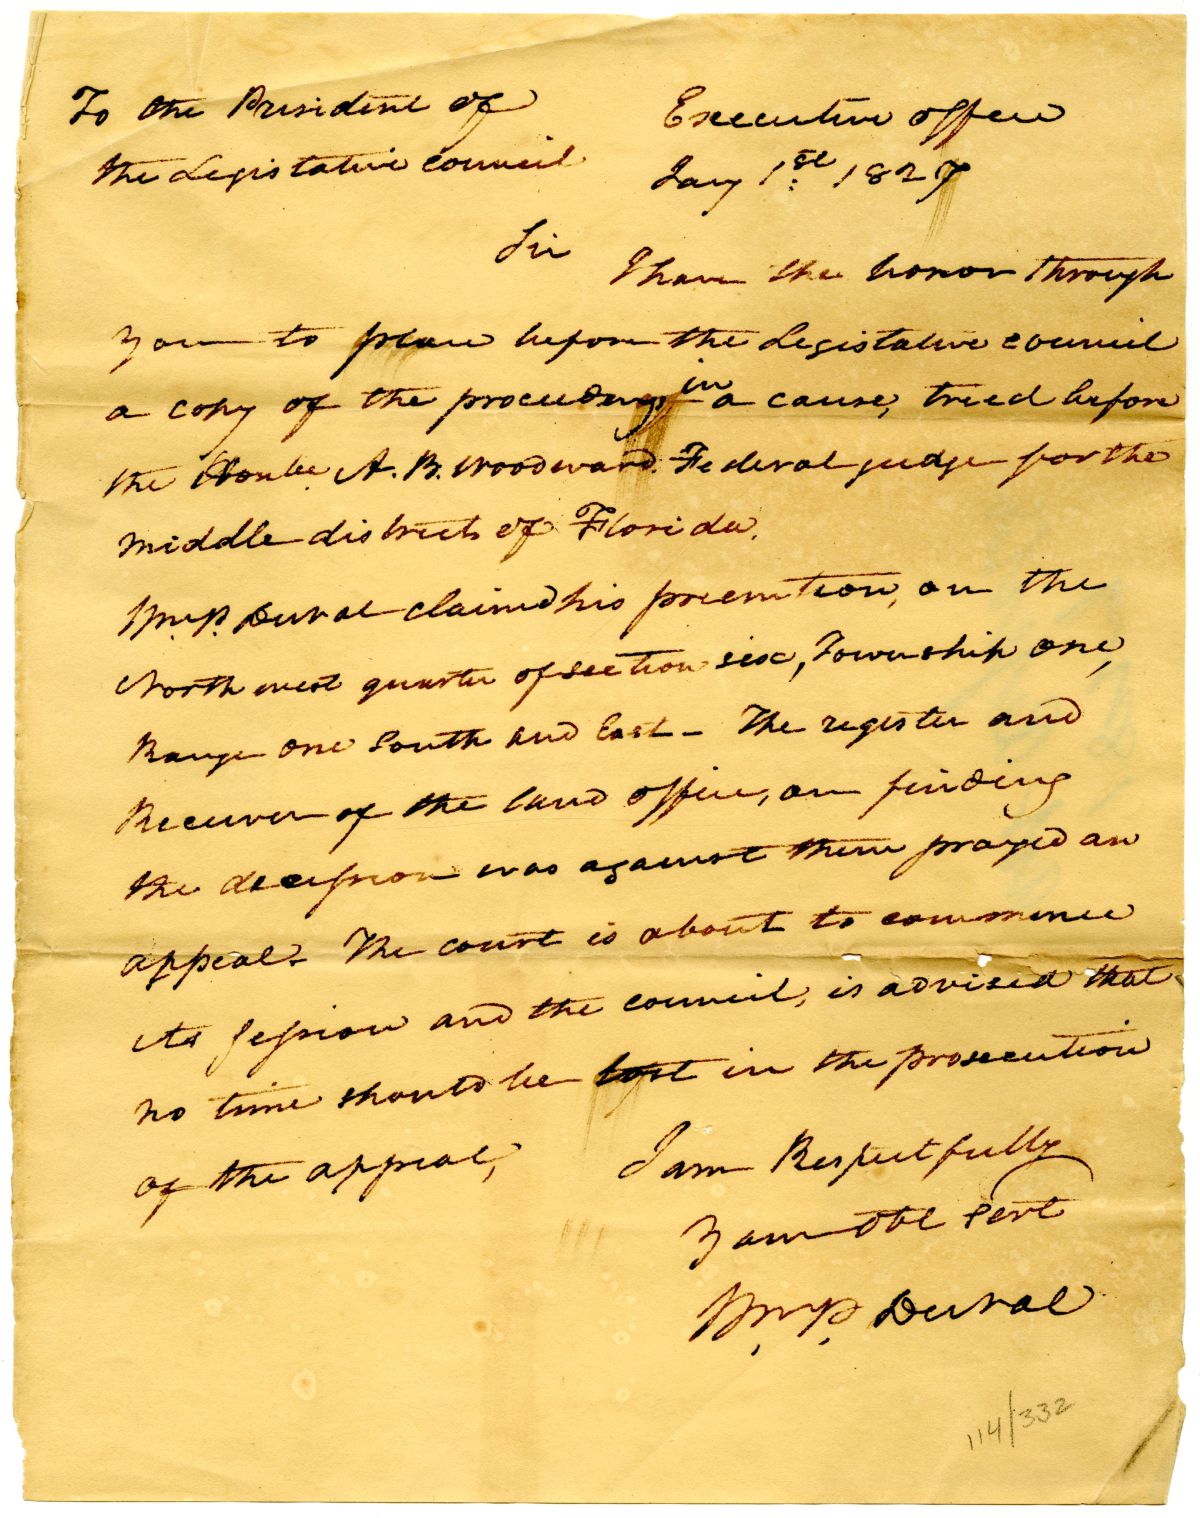 To the President of
the Legislative council
Executive office
Jany 1st 1827
Sir
I have the honor through
you to place before the Legislative council
a copy of the proceedings in a cause, tried before
the Honbe. A. B. Woodward Federal judge for the
middle district of Florida.
Wm. P. Duval claimed his preemtion, on the
North west quarter of section six, Township one,
Range one South and East - The register and
Receiver of the land office, on finding
the decission was against them prayed an
appeal. The court is about to commence
its session and the council, is advised that
no time should be lost in the prosecution
of the appeal,
I am Respectfully
Your Obt Sert
Wm. P. Duval
114/332